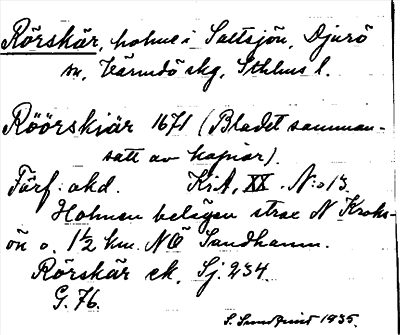 Rörskär, holme i Saltsjön, Djurö
sn, Värmdö skg, Sthlms l.
Röörskiär 1671 (Bladet samman-
satt av kopior).
Förf: okd. KrA, XX. N:o 13.
Holmen belägen strax N Kroks-
ön o. 1½ km. NÖ Sandhamn.
Rörskär ek. Sj. 234.
G. 76.
S. Sundquist 1935.